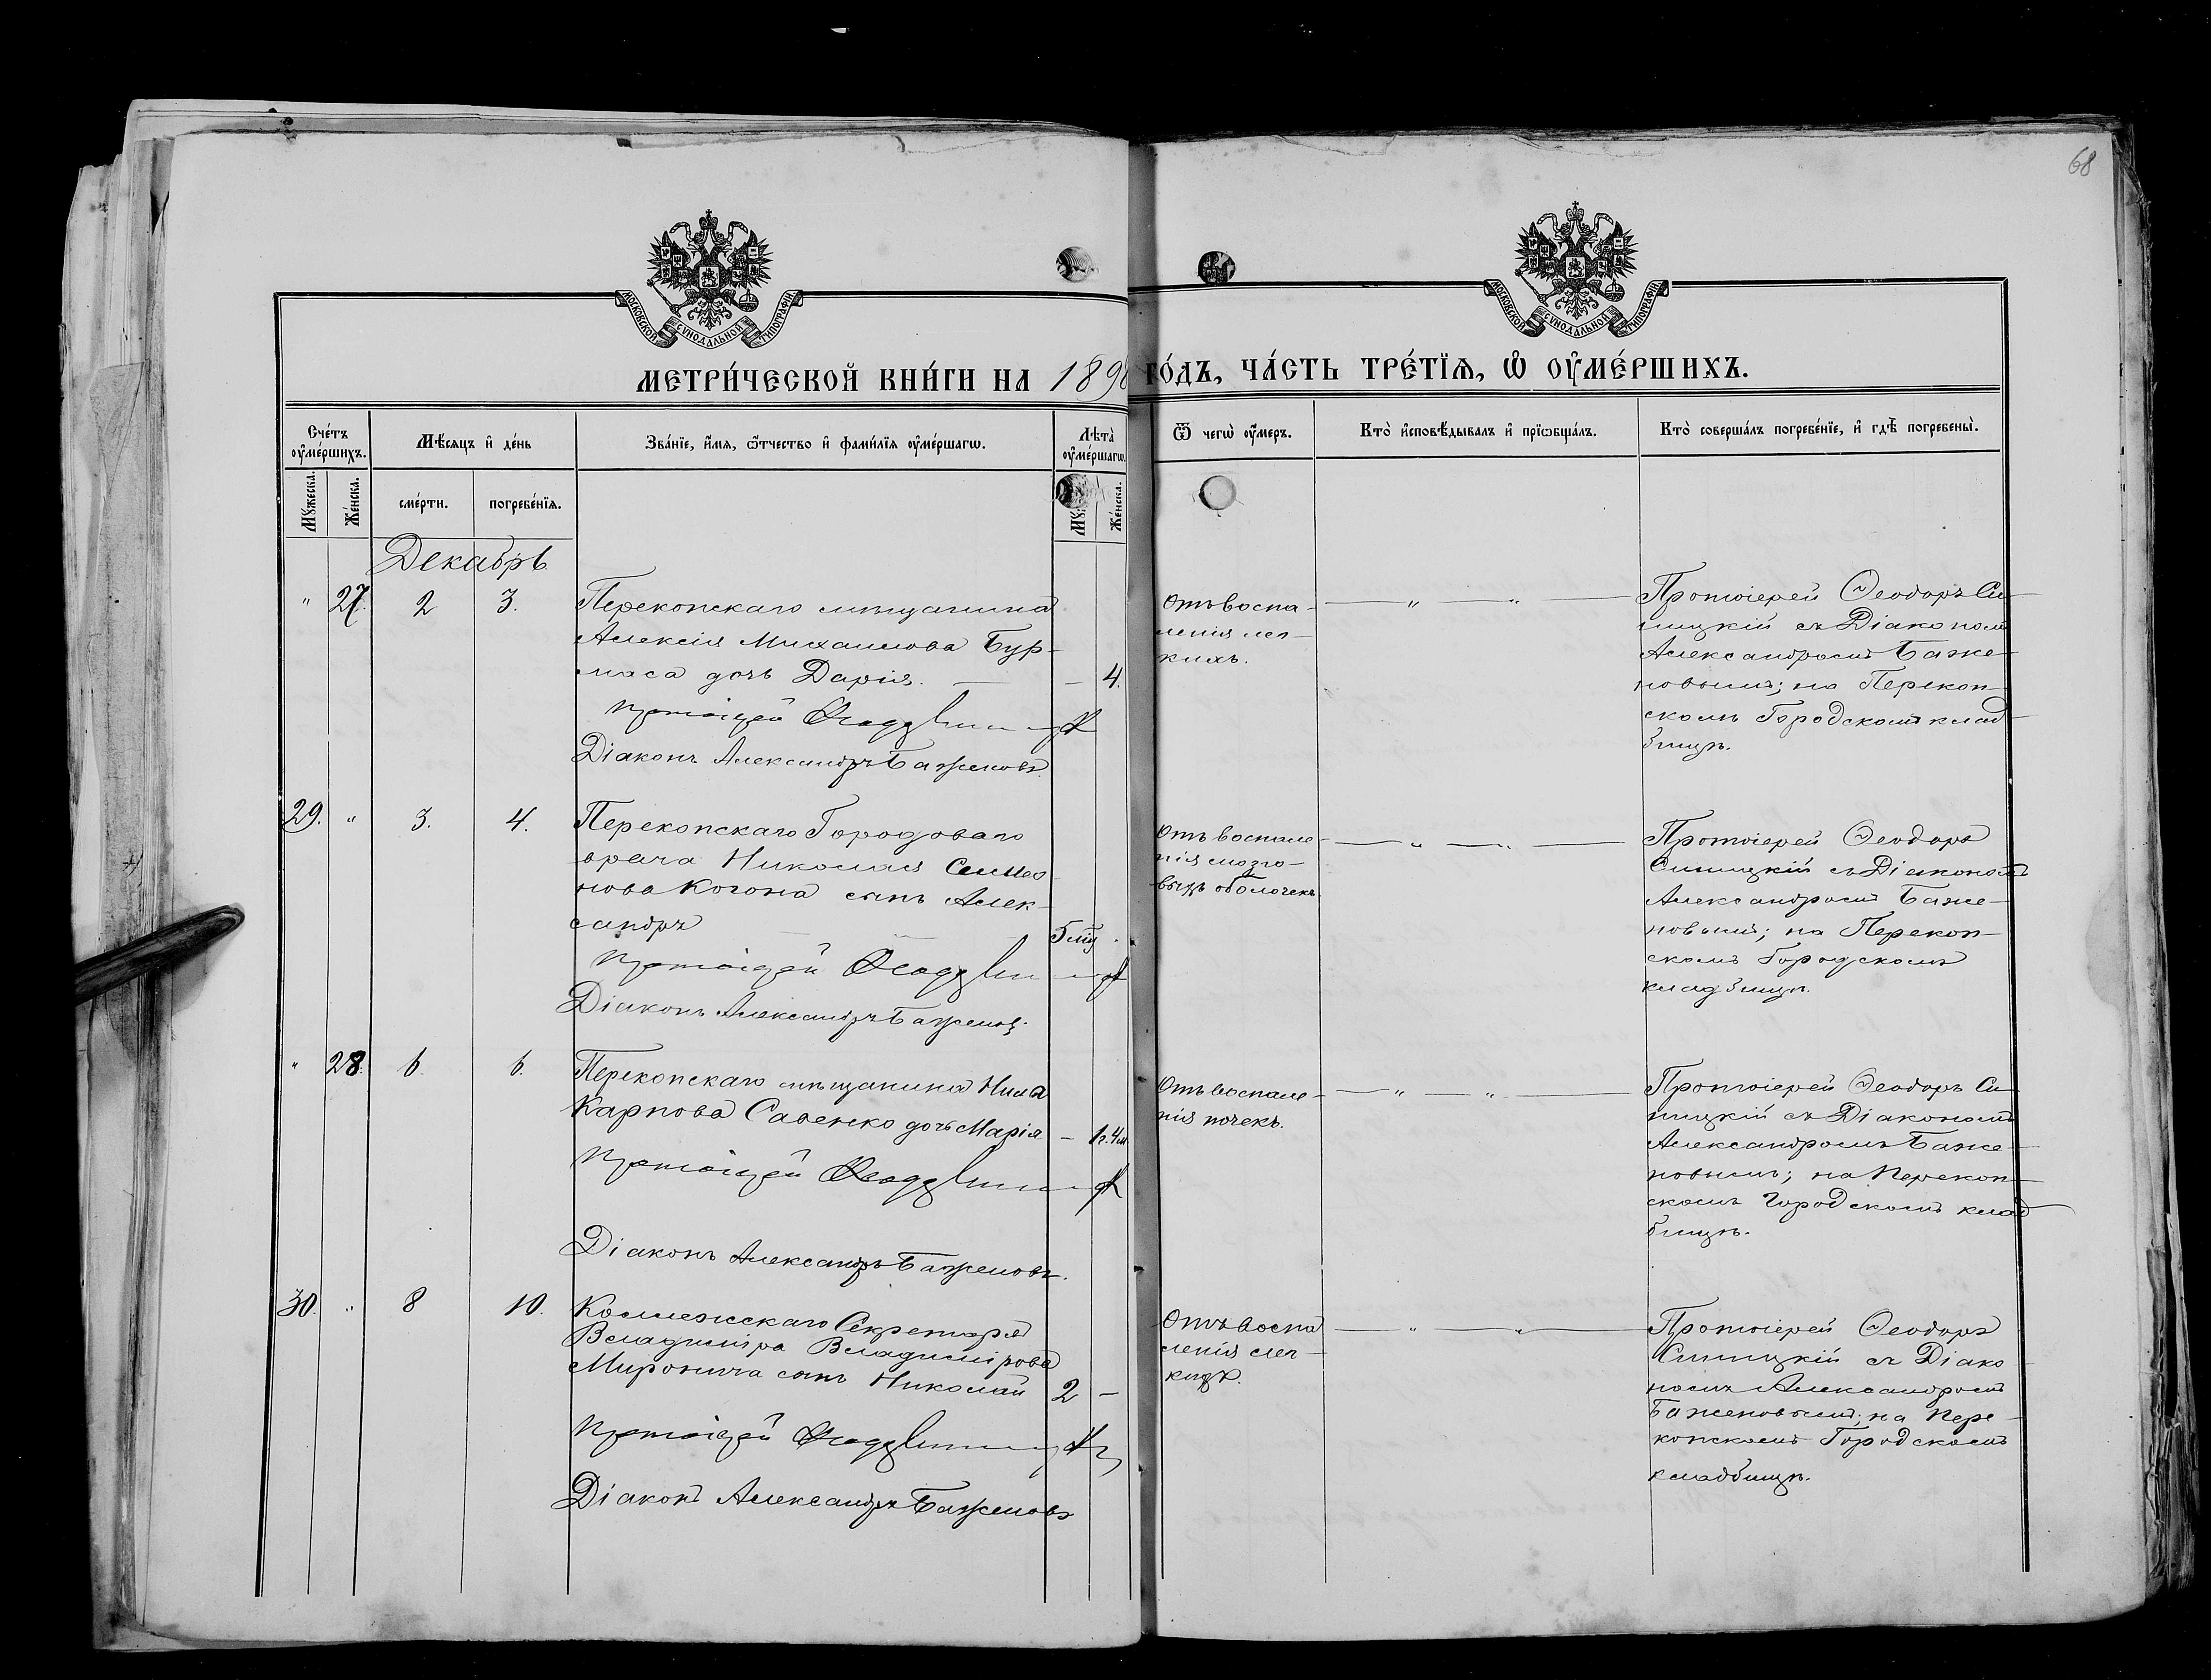 68
МОСКОВСКОЙ СУНОДАЛЬНОЙ ТИПОГРАФІИ
МОСКОВСКОЙ СУНОДАЛЬНОЙ ТИПОГРАФІИ
МЕТРИ́ЧЕСКОЙ КНИ́ГИ НА 189
ГО́ДЪ, ЧА́СТЬ ТРЕ́ТЇѦ, Ѿ ОУ҆МЕ́РШИХЪ.
Сче́тъ оу҆ме́ршихъ.
Мѣ́сяцъ и҆ де́нь
Зва́нїе, и҆́мя, ѻ҆́тчество и҆ фами́лїя оу҆ме́ршагѡ.
Лѣта̀ оу҆ме́ршагѡ.
Ѿ чегѡ̀ оу҆́меръ.
Кто̀ и҆сповѣ́дывалъ и҆ прїѡбща́лъ.
Кто̀ соверша́лъ погребе́нїе, и҆ гдѣ̀ погребены̀.
Мꙋ́жеска.
Же́нска.
сме́рти.
погребе́нїя.
Же́нска.
Декабрь
" 27. 2 3.
Перекопскаго мѣщанина
Алексія Михаилова Бур-
маса дочь Дарія. — — 4.
Протоіерей
Діаконъ Александръ Баженовъ
Отъ воспа-
ленія лег-
кихъ.
— " — " —
Протоіерей Ѳеодоръ Си-
ницкій съ Діакономъ
Александромъ Баже-
новымъ; на Перекоп-
скомъ Городскомъ клад-
бищѣ.
29. " 3. 4.
Перекопскаго Городоваго
врача Николая Семео-
нова Когона сынъ Алек-
сандръ 5 мѣ
Протоіерей
Діаконъ Александръ Баженовъ.
Отъ воспале-
нія мозго-
выхъ оболочекъ
— " — " —
Протоіерей Ѳеодоръ
Синицкій съ Діакономъ
Александромъ Баже-
новымъ; на Перекоп-
скомъ Городскомъ
кладбищѣ.
" 28. 6. 6.
Перекопскаго мѣщанина Нила
Карпова Савенко дочь Марія — 1г. 4м
Протоіерей
Діаконъ Александръ Баженовъ.
Отъ воспале-
нія почекъ.
— " — " —
Протоіерей Ѳеодоръ Си-
ницкій съ Діакономъ
Александромъ Баже-
новымъ; на Перекоп-
скомъ Городскомъ клад
бищѣ.
30. " 8 10.
Коллежскаго Секретаря
Владиміра Владимірова
Мировича сынъ Николай 2 —
Протоіерей
Діаконъ Александръ Баженовъ
Отъ воспа
ленія лег-
кихъ.
— " — " —
Протоіерей Ѳеодоръ
Синицкій съ Діако-
номъ Александромъ
Баженовымъ; на Пере-
копскомъ Городскомъ
кладбищѣ.